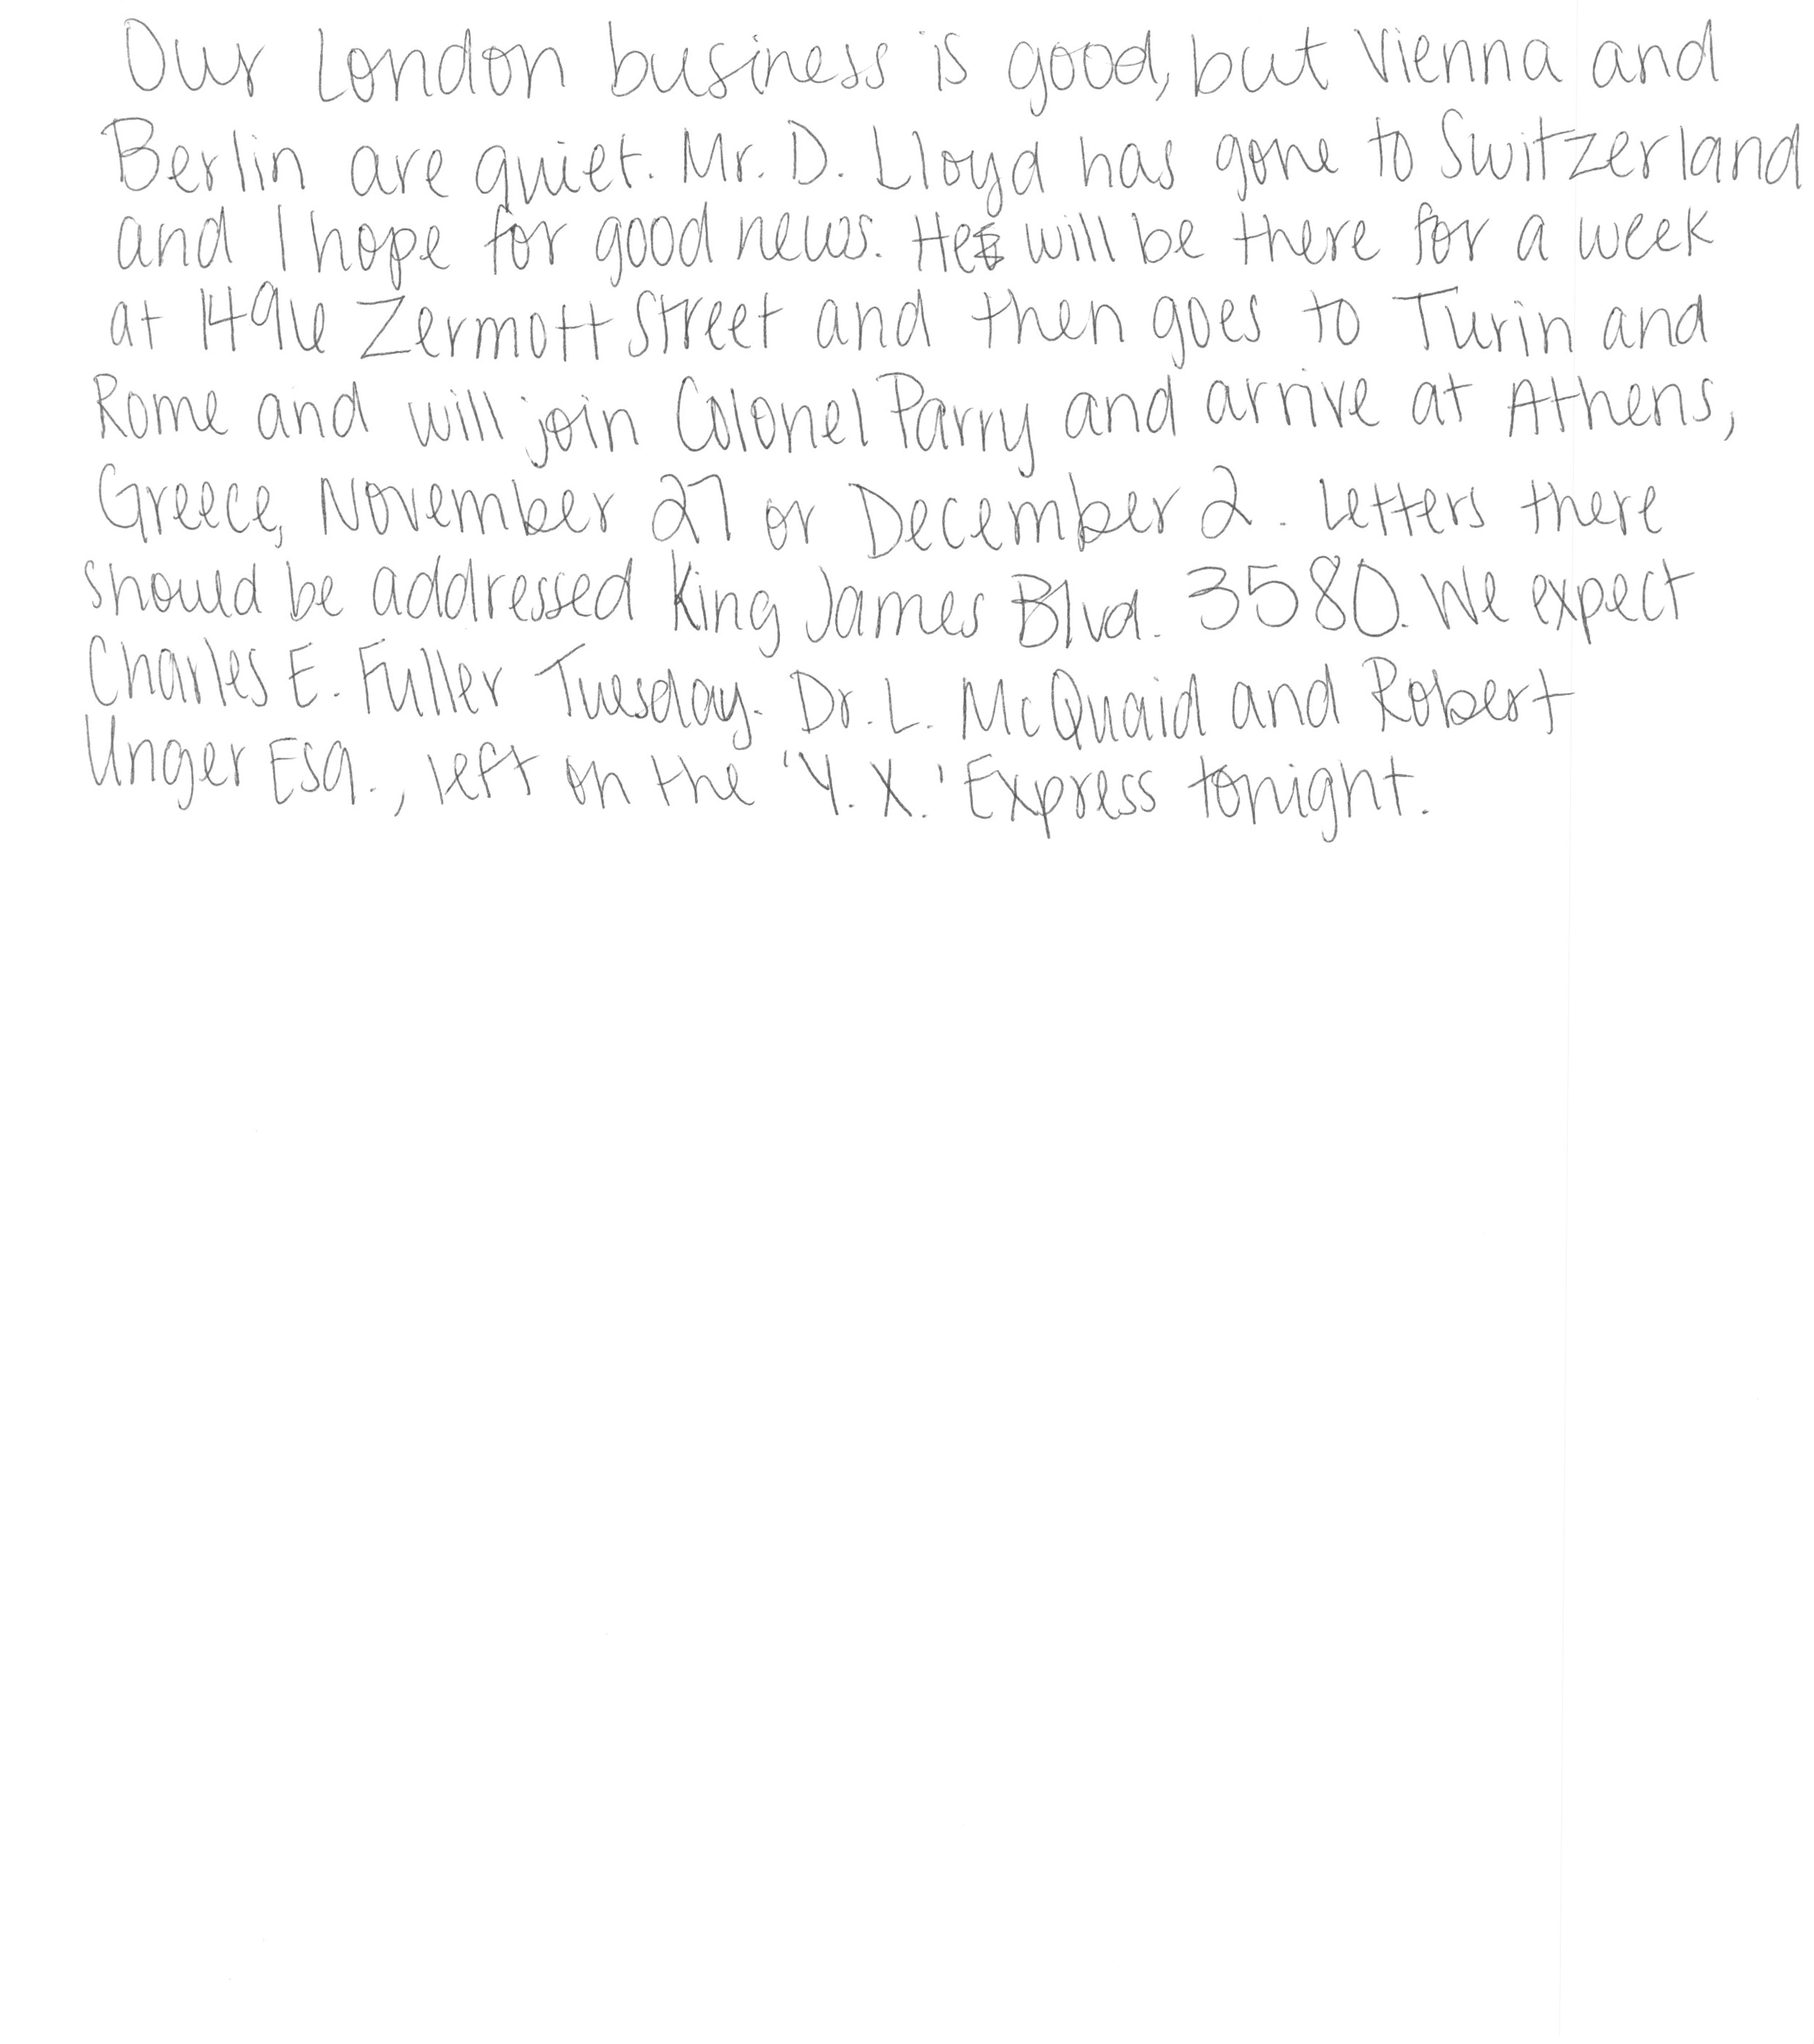 Our London business is good, but Vienna and
Berlin are quiet. Mr. D. Lloyd has gone to Switzerland
and I hope for good news. He will be there for a week
at 1496 Zermott Street and then goes to Turin and
Rome and will join Colonel Parry and arrive at Athens,
Greece, November 27 or December 2. Letters there
should be addressed King James Blvd. 3580. We expect
Charles E. Fuller Tuesday. Dr. L. McQuaid and Robert
Unger Esq., left on the 'Y. X.' Express tonight.